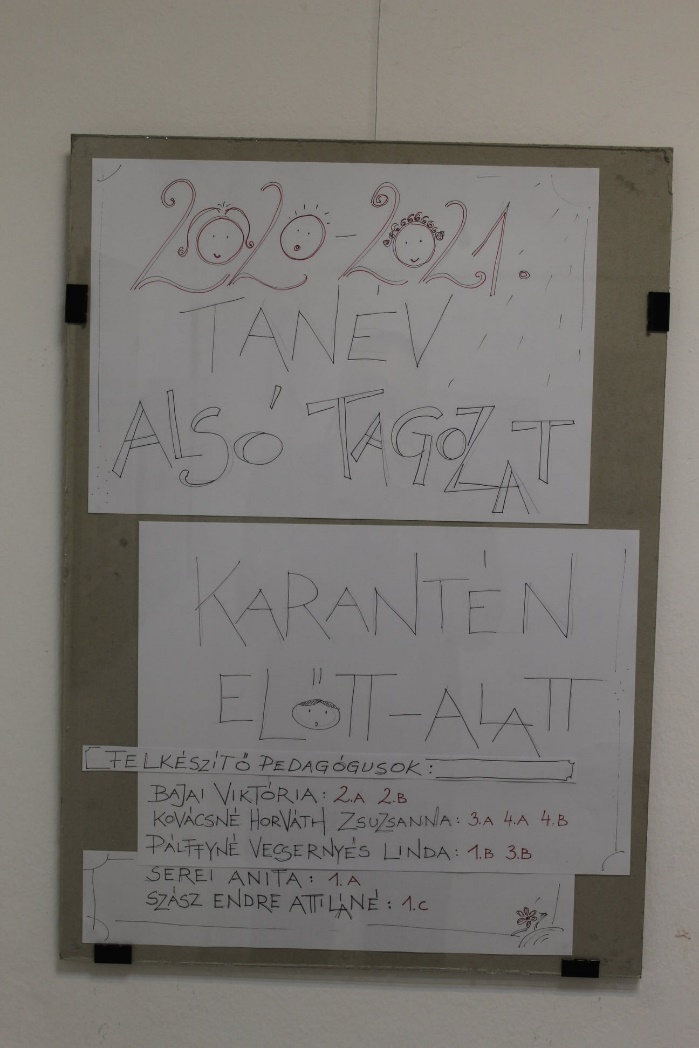 2020-2021.
TANÉV
ALSÓ TAGOZAT
KARANTÉN
ELŐTT-ALATT
FELKÉSZÍTŐ PEDAGÓGUSOK:
BAJAI VIKTÓRIA: 2.A 2.B
KOVÁCSNÉ HORVÁTH ZSUZSANNA: 3.A 4.A 4.B
PÁLFFYNÉ VECSERNYÉS LINDA: 1.B 3.B
SEREI ANITA: 1.A
SZÁSZ ENDRE ATTILÁNÉ: 1.C